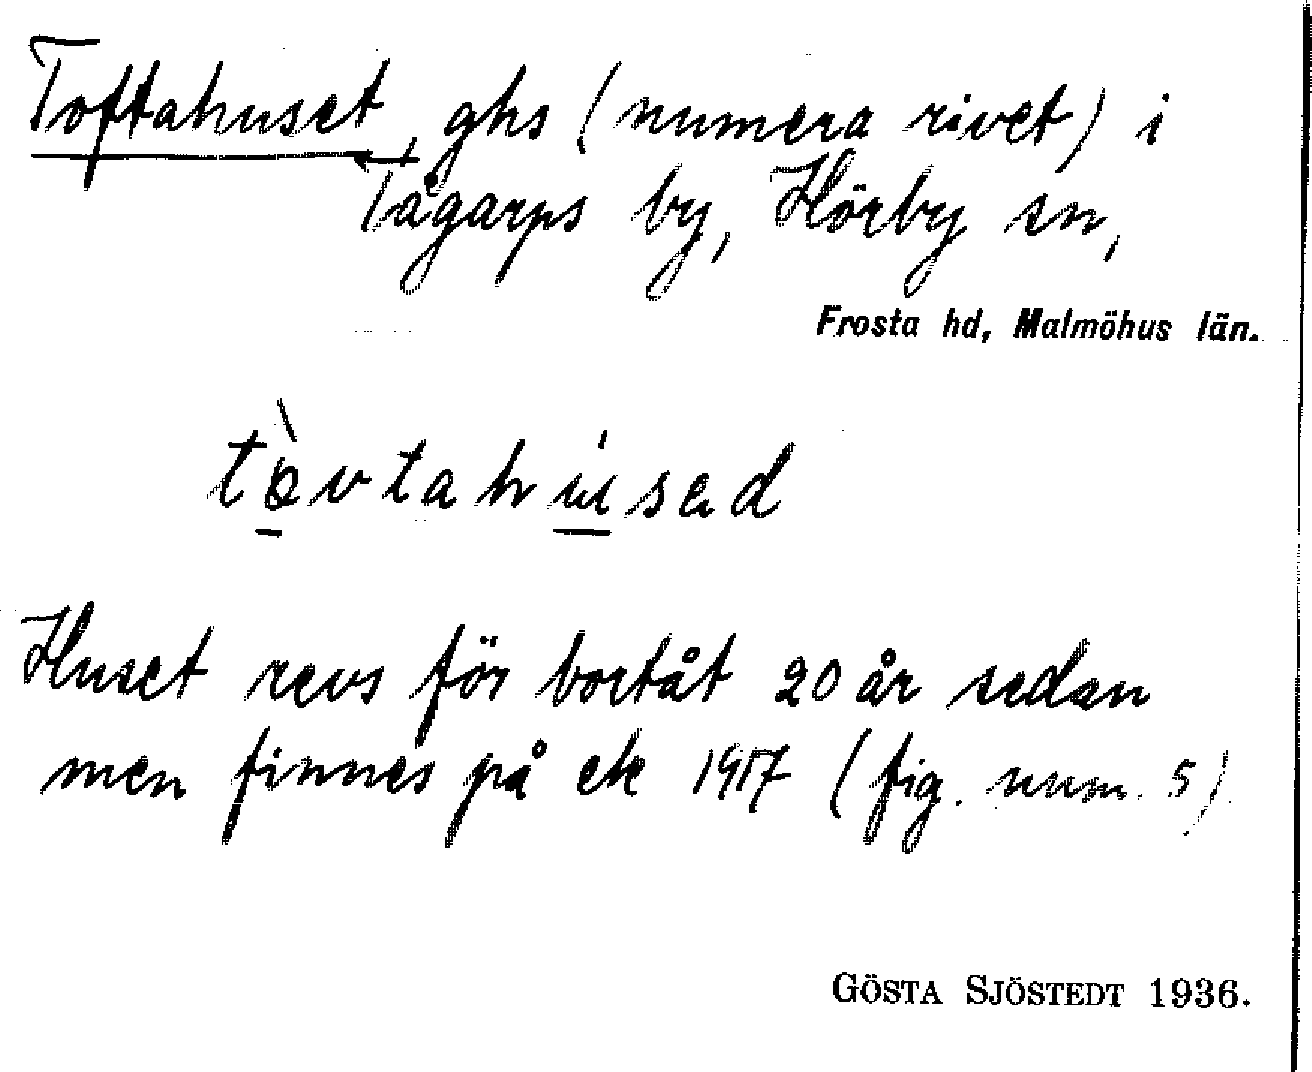 Toftahuset, ghs (numera rivet) i
Tågarps by, Hörby sn,
Frosta hd, Malmöhus län.
tòvtahúsed
Huset revs för bortåt 20 år sedan
men finnes på ek 1917 (fig. num. 5)
GÖSTA SJÖSTEDT 1936.